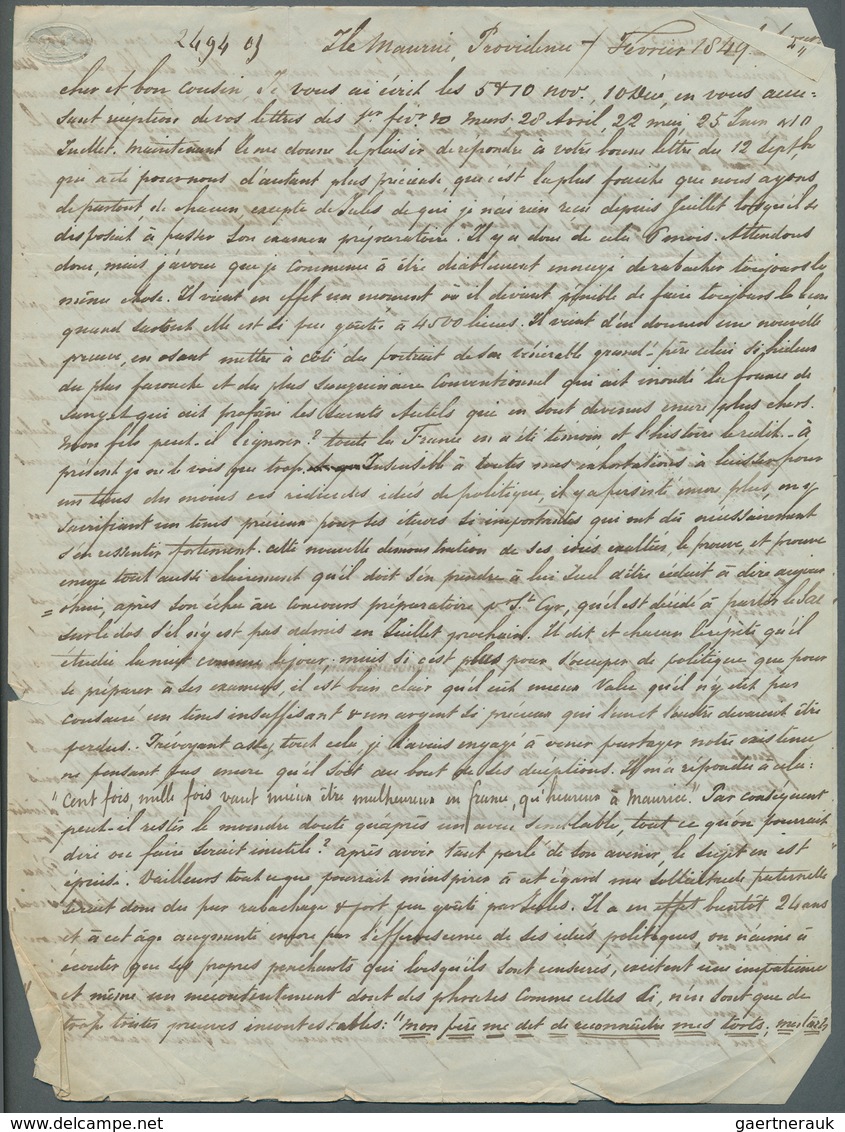 2494 09 Ile Maurice, Providence 7 Février 1849
cher et bon cousin, Je vous ai écrit les 5 & 10 nov. 10 Déc. en vous accu-
sant réception de vos lettres des 1er févr 30 mars 28 Avril, 22 mai 25 Juin & 10
Juillet. Maintenant Je me donne le plaisir de répondre à votre bonne lettre du 12 Septbre
qui a été pour nous d'autant plus précieuse, que c'est la plus fraiche que nous ayons
de partout de chacun, excepté de Jules de qui je n'ai rien reçu depuis Juillet lorsqu'il se
disposait à passer son examen préparatoire. Il y a donc de cela 6 mois. Attendons
donc, mais j'avoue que je commence à être diablement ennuyé de rabacher toujours la
même chose. Il vient en effet un moment où il devient pénible de faire toujours la
quand surtout elle est si peu goûtée à 4500 lieues. Il vient d'en donner une nouvelle
preuve, en osant mettre à côté du portrait de son vénérable grand-père celui si hideux
du plus farouche et du plus sanguinaire Conventionnel qui ait inondé la france de
sang et qui ait profané les saints Autels qui en sont devenus encore plus chers.
Mon fils peut-il l'ignorer? toute la France en a été témoin, et l'histoire le redit. À
présent je ne le vois que trop Insensible à toutes mes exhortations à laisser pour
un tems du moins ces ridicules idées de politique, il y a persisté encore plus, en y
sacrifiant un tems précieux pour ses études si importantes qui ont dû nécessairement
s'en ressentir fortement. cette nouvelle démonstration de ses idées exaltées, le prouve, et prouve
encore tout aussi clairement qu'il doit s'en prendre à lui seul d'être réduit à dire aujour-
=d'hui, après son échec au concours préparatoire pr St Cyr, qu'il est décidé à porter le Sac
sur le dos s'il n'y est pas admis en Juillet prochain. Il dit et chacun le répète qu'il
étudie la nuit comme le jour. mais si c'est plus pour s'occuper de politique que pour
se préparer à ses examens, il est bien clair qu'il eût mieux valu qu'il n'y eût pas
consacré un tems insuffisant & un argent si précieux qui l'un et l'autre devaient être
perdus. Prévoyant assez tout cela, je l'avais engagé à venir partager notre existence
ne pensant pas encore qu'il soit au bout de ses déceptions. Il m'a répondu à cela:
"Cent fois, mille fois vaut mieux être malheureux en france, qu'heureux à Maurice." Par conséquent
peut-il rester le moindre doute qu'après un aveu semblable, tout ce qu'on pourrait
dire ou faire serait inutile? après avoir tant parlé de son avenir, le sujet en est
épuisé. D'ailleurs tout ce que pourrait m'inspirer à cet égard ma sollicitude paternelle
serait donc du pur rabachage & fort peu goûté par Jules. Il a en effet bientôt 24 ans
et à cet âge augmenté encore par l'effervescence de ses idées politiques, on n'aime à
écouter que ses propres penchants qui lorsqu'ils sont censurés, excitent une impatience
et même un mécontentement dont des phrases comme celles ci, n'en sont que de
trop tristes preuves incontestables: "mon père me dit de reconnaître mes torts; mes torts
gaertnerauk @ delcampe.net